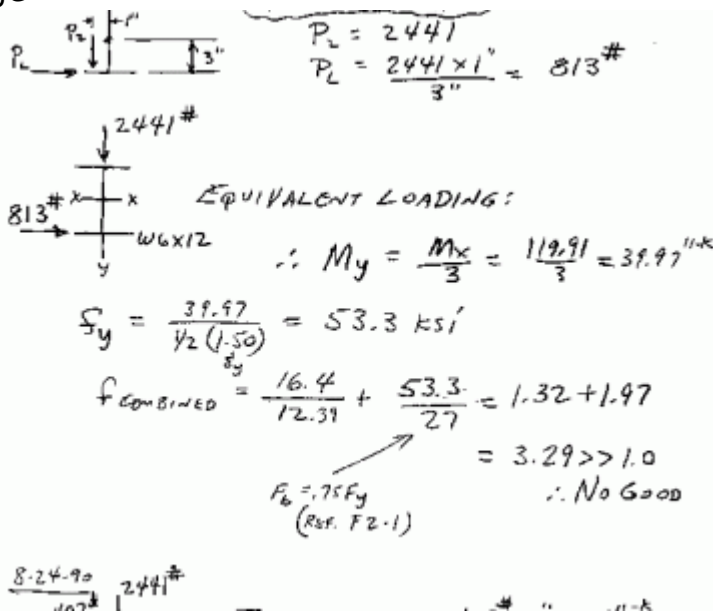 P₂ 1"
P_L 3"
P₂ = 2441
P_L = 2441 x 1" / 3" = 813#
2441#
813# x x EQUIVALENT LOADING:
W6x12
y
∴ My = Mx / 3 = 119.91 / 3 = 39.97"-K
fy = 39.97 / 1/2 (1.50) = 53.3 ksi
f COMBINED = 16.4 / 12.39 + 53.3 / 27 = 1.32 + 1.97
= 3.29 >> 1.0
∴ NO GOOD
F_b = .75Fy
(REF. F2-1)
8-24-90 2441#